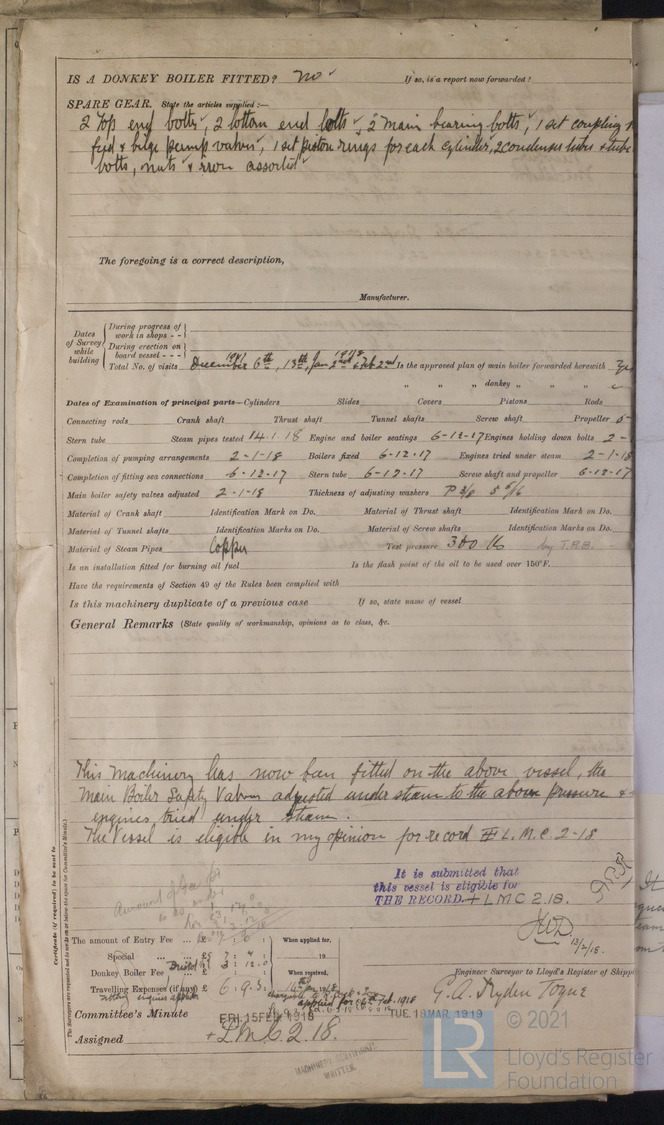 IS A DONKEY BOILER FITTED? no If so, is a report now forwarded?
SPARE GEAR. State the articles supplied:—
2 Top end bolts, 2 bottom end bolts, 2 main bearing bolts, 1 set coupling
feed & bilge pump valves, 1 set piston rings for each cylinder, 2 condenser tubes & tube
bolts, nuts & iron assorted
The foregoing is a correct description,
Manufacturer.
Dates of Survey while building
During progress of work in shops - -
During erection on board vessel - - -
Total No. of visits December 1917 6th, 13th, Jan 1918 2nd Feb 2nd Is the approved plan of main boiler forwarded herewith Yes
" " donkey " " "
Dates of Examination of principal parts—Cylinders Slides Covers Pistons Rods
Connecting rods Crank shaft Thrust shaft Tunnel shafts Screw shaft Propeller
Stern tube Steam pipes tested 14.1.18 Engine and boiler seatings 6-12-17 Engines holding down bolts 2-
Completion of pumping arrangements 2-1-18 Boilers fixed 6-12-17 Engines tried under steam 2-1-18
Completion of fitting sea connections 6-12-17 Stern tube 6-12-17 Screw shaft and propeller 6-12-17
Main boiler safety valves adjusted 2-1-18 Thickness of adjusting washers P 3/8 S 5/16
Material of Crank shaft Identification Mark on Do. Material of Thrust shaft Identification Mark on Do.
Material of Tunnel shafts Identification Marks on Do. Material of Screw shafts Identification Marks on Do.
Material of Steam Pipes Copper Test pressure 300 lb
Is an installation fitted for burning oil fuel Is the flash point of the oil to be used over 150°F.
Have the requirements of Section 49 of the Rules been complied with
Is this machinery duplicate of a previous case If so, state name of vessel
General Remarks (State quality of workmanship, opinions as to class, &c.
This Machinery has now been fitted on the above vessel, the
Main Boiler Safety Valves adjusted under steam to the above pressure &
engines tried under steam.
The Vessel is eligible in my opinion for record + L.M.C 2-18
Amount of fee for
It is submitted that
this vessel is eligible for
THE RECORD. + LMC 2.18.
JWD
13/2/18.
Certificate (if required) to be sent to
The Surveyors are requested not to write on or below the space for Committee's Minute.
The amount of Entry Fee ... £ : : When applied for,
Special ... £ : : 19
Donkey Boiler Fee ... £ : : When received,
Travelling Expenses (if any) £ 6 : 9 . 3 :
Engineer Surveyor to Lloyd's Register of Shipp
G. A. Dryden Togne
Committee's Minute FRI. 15 FEB. 1918 TUE. 18 MAR. 1919
Assigned + L.M.C 2.18.
MACHINERY CERTIFICATE
WRITTEN.
LR © 2021
Lloyd's Register
Foundation